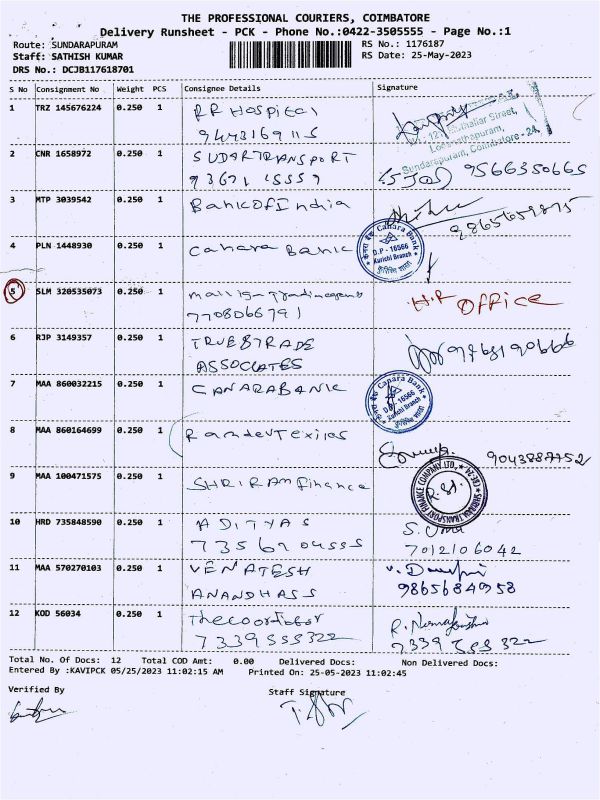 THE PROFESSIONAL COURIERS, COIMBATORE
Delivery Runsheet - PCK - Phone No.:0422-3505555 - Page No.:1
Route: SUNDARAPURAM
RS No.: 1176187
Staff: SATHISH KUMAR
RS Date: 25-May-2023
DRS No.: DCJB117618701
S No Consignment No Weight PCS Consignee Details Signature
1 TRZ 145676224 0.250 1 RR Hospital
9443169115
Sundarapuram, Coimbatore - 24.
2 CNR 1658972 0.250 1 SUDARTRANSPORT
9566350665
3 MTP 3039542 0.250 1 BankOfIndia
4 PLN 1448930 0.250 1 Canara Bank
Canara Bank
D.P - 16566
Kurichi Branch
5 SLM 320535073 0.250 1
7708066791
H.R OFFICE
6 RJP 3149357 0.250 1 TRUEBTRADE
ASSOCIATES
7 MAA 860032215 0.250 1 CANARABANK
Canara Bank
D.P - 16566
Kurichi Branch
8 MAA 860164699 0.250 1 Ramdev Texilas
9043887752
9 MAA 100471575 0.250 1 SHRIRAM finance
SHRIRAM TRANSPORT FINANCE COMPANY LTD.
10 HRD 735848590 0.250 1 ADITYAS
S. Uma
7356904555
7012106042
11 MAA 570270103 0.250 1 VENATESH
ANANDHASS
9865684958
12 KOD 56034 0.250 1
7339555322
7339555322
Total No. Of Docs: 12 Total COD Amt: 0.00 Delivered Docs: Non Delivered Docs:
Entered By :KAVIPCK 05/25/2023 11:02:15 AM Printed On: 25-05-2023 11:02:45
Verified By
Staff Signature